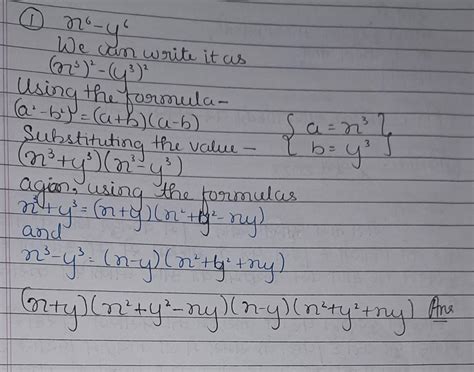 ① x⁶-y⁶
We can write it as
(x³)²-(y³)²
Using the formula-
(a²-b²)=(a+b)(a-b) { a=x³
Substituting the value - b=y³ }
(x³+y³)(x³-y³)
again, using the formulas
x³+y³=(x+y)(x²+y²-xy)
and
x³-y³=(x-y)(x²+y²+xy)
(x+y)(x²+y²-xy)(x-y)(x²+y²+xy) Ans